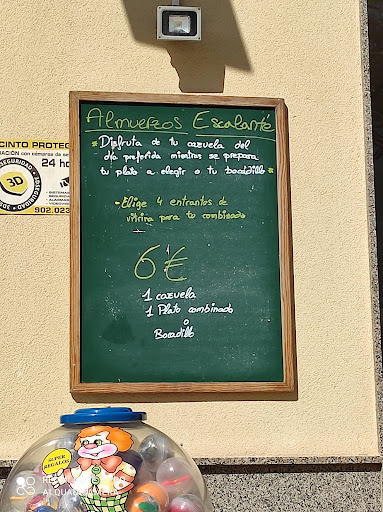 Almuerzos Escalante
* Disfruta de tu cazuela del
día preferida mientras se prepara
tu plato a elegir o tu bocadillo *
- Elige 4 entrantes de
vitrina para tu combinado
6 €
1 cazuela
1 Plato combinado
o
Bocadillo
CINTO PROTEG
24 ho
3D SEGURIDAD
3D
902.023
SUPER
REGALOS